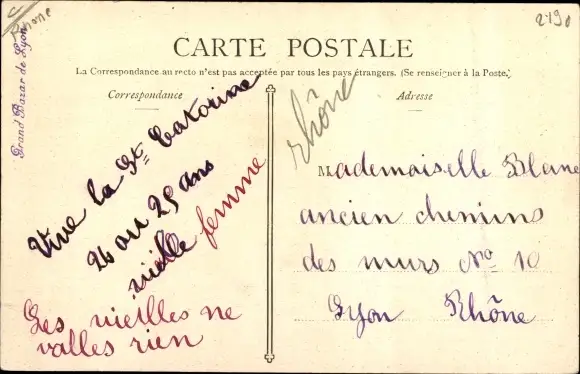 Rhône
2190
Grand Bazar de Lyon
CARTE POSTALE
La Correspondance au recto n'est pas acceptée par tous les pays étrangers. (Se renseigner à la Poste.)
Correspondance
Adresse
Vive la St Catorine
24 ou 25 ans
vieille femme
Les vieilles ne
valles rien
Rhône
Mademoiselle Blanc
ancien chemins
des murs No 10
Lyon Rhône